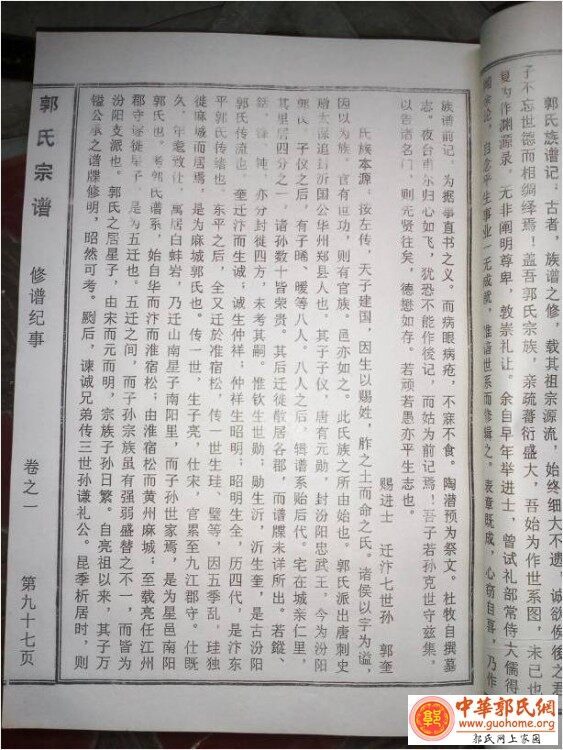 郭氏族谱记：古者，族谱之修，载其祖宗源流，始终细大不遗，诚欲俟後之君
子不忘世德而相绸缪焉！盖吾郭氏宗族，亲疏蕃衍盛大，吾始为作世系图，未已也
复为作渊源录。无非阐明尊卑，敦崇礼让。余自早年举进士，曾试礼部常侍大儒得
闻余论，自念平生事业一无成就，惟谙世系而修缉之。表章既成，心窃自喜，乃作
族谱前记，为摭事直书之义。而病眼病疮，不寐不食。陶潜预为祭文。杜牧自撰墓
志。夜台尔归心如飞，犹恐不能作後记，而姑为前记焉！吾子若孙克世守兹集。
以告诸名门，则先贤往矣，德懋如存。若顽若愚亦平生志也。
赐进士 迁汴七世孙 郭奎
氏族本源：按左传，天子建国，因生以赐姓，胙之土而命之氏。诸侯以字为谥，
因以为族。官有世功，则有官族。邑亦如之。此氏族之所由始也。郭氏派出唐刺史
赠太保追封沂国公华州郑县人也。其子子仪，唐有元勋，封汾阳忠武王。今为汾阳
郭氏。子仪之后，有子晞、暧等八人。八人之后，辑谱系贻后代。宅在城亲仁里，
其里居四分之一，诸孙数十皆荣贵。其后迁徙散居各郡，而谱牒未详所出。若鏦、
钟，亦分封徙四方，未考其嗣。推钦生世勋，勋生沂，沂生奎，是古汾阳
郭氏传流也。奎迁汴而生诚；诚生仲祥；仲祥生昭明；昭明生全，历四代，是汴东
平郭氏传绪也。东平之后，全又迁於淮宿松，传一世生珪、璧等，因五季乱，珪独
徙麻城而居焉，是为麻城郭氏也。传一世，生子亮，仕宋，官累至九江郡守。仕既
久，年耄致仕，寓居白蚌岩，乃迁山南星子南阳里，而子孙世家焉，是为星邑南阳
郭氏也。考郭氏谱系，始自华而汴而淮宿松；由淮宿松而黄州麻城；至载亮任江州
郡守遂徙星子，是为五迁也。五迁之间，而子孙宗族虽有强弱盛替之不一，而皆为
汾阳支派也。郭氏之居星子，由宋而元而明，宗族子孙日繁。自亮祖以来，其子万
镒公承之谱牒修明，昭然可考。厥后，谏诚兄弟传三世孙谦礼公。昆季析居时，则
郭氏宗谱 修谱纪事 卷之一 第九十七页
郭
中華郭氏網
www.guohome.org
郭氏网上家园